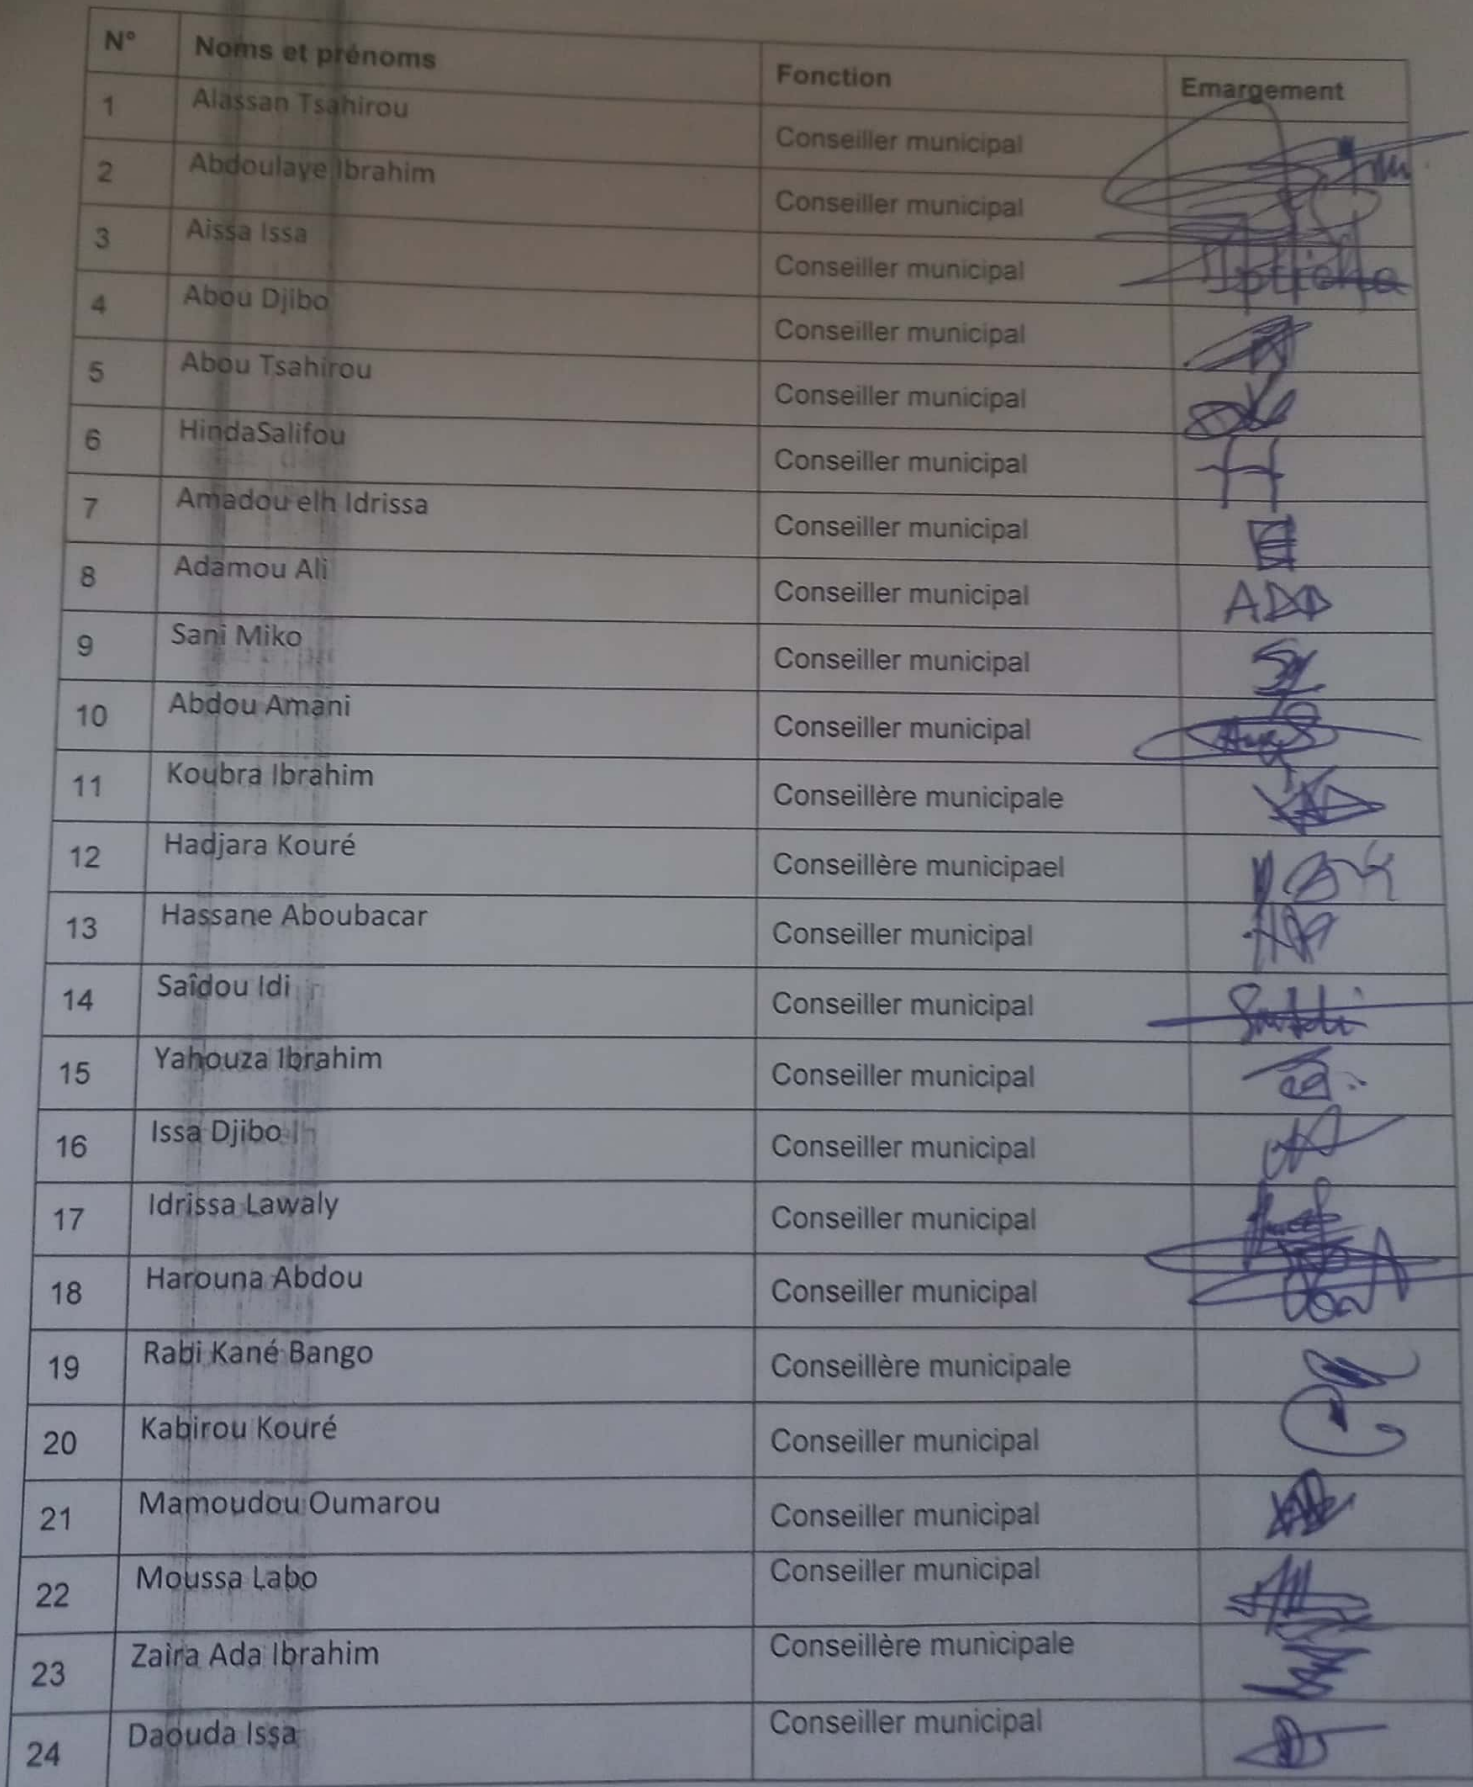 N° Noms et prénoms Fonction Emargement
1 Alassan Tsahirou Conseiller municipal
2 Abdoulaye Ibrahim Conseiller municipal
3 Aissa Issa Conseiller municipal
4 Abou Djibo Conseiller municipal
5 Abou Tsahirou Conseiller municipal
6 HindaSalifou Conseiller municipal
7 Amadou elh Idrissa Conseiller municipal
8 Adamou Ali Conseiller municipal
9 Sani Miko Conseiller municipal
10 Abdou Amani Conseiller municipal
11 Koubra Ibrahim Conseillère municipale
12 Hadjara Kouré Conseillère municipael
13 Hassane Aboubacar Conseiller municipal
14 Saîdou Idi Conseiller municipal
15 Yahouza Ibrahim Conseiller municipal
16 Issa Djibo Conseiller municipal
17 Idrissa Lawaly Conseiller municipal
18 Harouna Abdou Conseiller municipal
19 Rabi Kané Bango Conseillère municipale
20 Kabirou Kouré Conseiller municipal
21 Mamoudou Oumarou Conseiller municipal
22 Moussa Labo Conseiller municipal
23 Zaira Ada Ibrahim Conseillère municipale
24 Daouda Issa Conseiller municipal